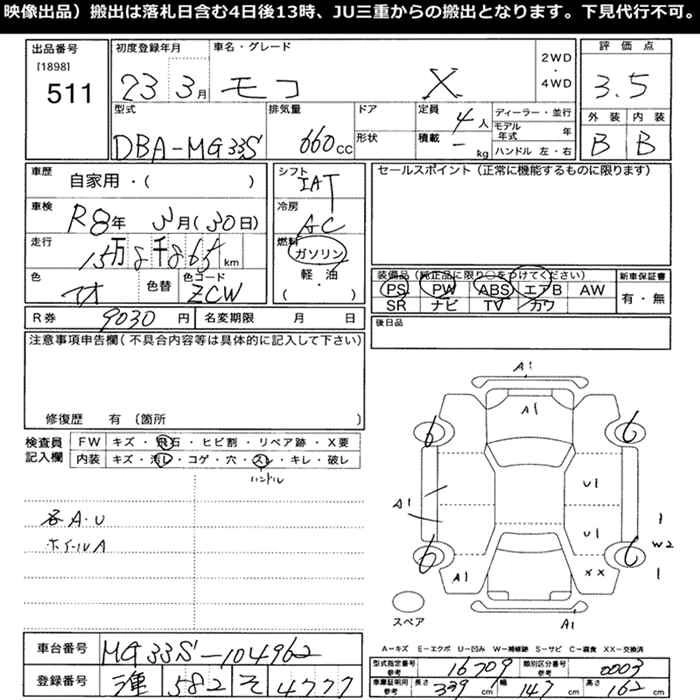 映像出品）搬出は落札日含む4日後13時、JU三重からの搬出となります。下見代行不可。
出品番号
[1898]
511
初度登録年月
23 3月
車名・グレード
モコ X
2WD
・
4WD
評価点
3.5
外装 内装
B B
型式
DBA-MG33S
排気量
660cc
ドア
形状
定員
4人
積載
- kg
ディーラー・並行
モデル年式 年
ハンドル 左・右
車歴
自家用・( )
車検
R8年 3月(30日)
走行
15万8千865km
色
アオ
色替
色コード
ZCW
シフト
IAT
冷房
AC
燃料
ガソリン
軽・油
( )
セールスポイント（正常に機能するものに限ります）
装備品（純正品に限り○をつけてください）
PS PW ABS エアB AW
SR ナビ TV カワ
新車保証書
有・無
R券 9030円
名変期限 月 日
後日品
注意事項申告欄（不具合内容等は具体的に記入して下さい）
修復歴 有（箇所 ）
検査員記入欄
FW キズ・飛石・ヒビ割・リペア跡・X要
内装 キズ・汚レ・コゲ・穴・スレ・キレ・破レ
ハンドル
各A・U
ホイールA
A1
A1
6 6
U1
A1
U1
W2
6 6
A1
XX
A1
スペア
A－キズ E－エクボ U－凹み W－補修跡 S－サビ C－腐食 XX－交換済
車台番号 MG33S-104962
登録番号 582 そ 4777
型式指定番号 参考 16709
類別区分番号 参考 0003
車庫証明用 参考 長さ 339cm 幅 147cm 高さ 162cm